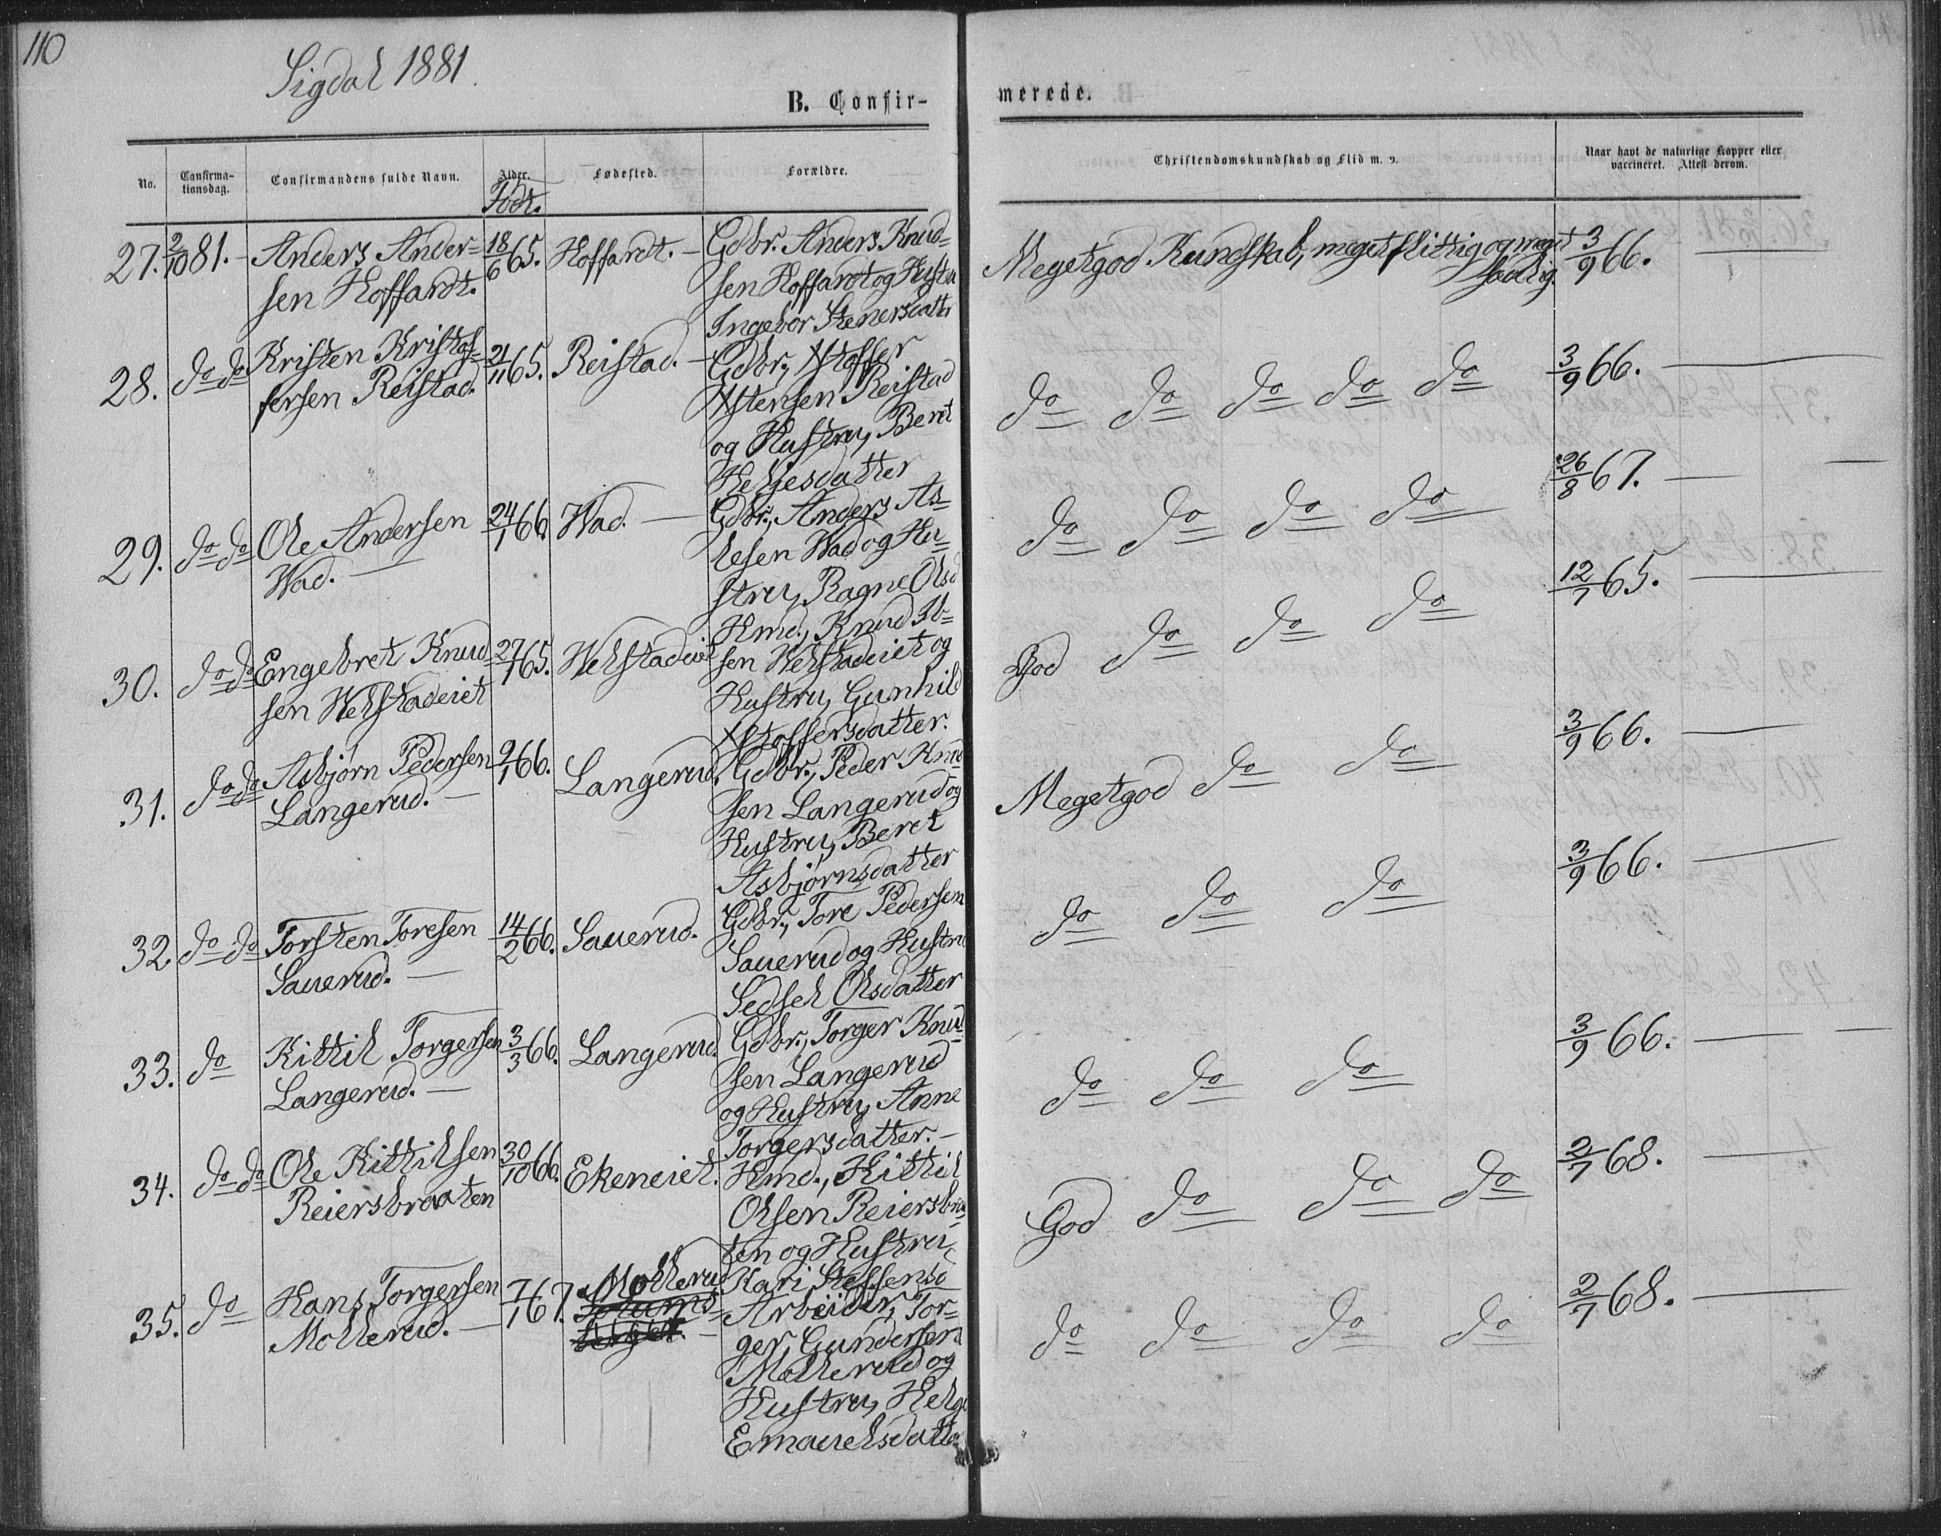 110
Sigdal 1881.
B. Confir-
merede.
No.
Confirma-
tionsdag.
Confirmandens fulde Navn.
Alder.
Født.
Fødested.
Forældre.
Christendomskundskab og Flid m. v.
Naar havt de naturlige Kopper eller
vaccineret. Attest derom.
27. 2/10 81. Anders Ander- 18/6 65. Hoffardt. Gdbr. Anders Knud-
sen Hoffardt. sen Hoffardt og Hustru
Ingebor Stenersdatter
Megetgod Kundskab, meget flittig og meget 3/9 66.
sædelig.
28. do do Kristen Kristof- 21/11 65. Reistad. Gdbr., Xstoffer
fersen Reistad. Xstensen Reistad
og Hustru, Berit
Helgesdatter
do do do do do 3/9 66.
29. do do Ole Andersen 24/1 66 Wad. Gdbr., Anders As-
Wad. lesen Wad og Hu-
stru, Ragne Olsd
do do do do 26/8 67.
30. do do Engebret Knud 27/1 65. Welstadeiet Hmd., Knud Ib-
sen Welstadeiet sen Welstadeiet og
Hustru, Gunhild
Xstoffersdatter.
God do do do 12/7 65.
31. do do Asbjørn Pedersen 9/1 66. Langerud. Gdbr., Peder Knud
Langerud. sen Langerud og
Hustru, Beret
Asbjørnsdatter
Megetgod do do 3/9 66.
32. do do Torsten Toresen 14/2 66. Sauerud. Gdbr., Tore Pedersen
Sauerud. Sauerud og Hustru
Sedsel Olsdatter
do do do 3/9 66.
33. do Kittil Torgersen 3/3 66. Langerud. Gdbr., Torger Knud
Langerud. sen Langerud
og Hustru, Anne
Torgersdatter.
do do do 3/9 66.
34. do do Ole Kittilsen 30/10 66. Ekeneiet. Hmd., Kittil
Reiersbraaten Olsen Reiersbraa-
ten og Hustru,
Kari Steffensd
God do do do 2/7 68.
35. do Hans Torgersen 7/1 67. Mollerud Arbeider, Tor-
Mollerud. ger Gundersen
Mollerud og
Hustru, Helge
Emauelsdatter
do do do do 2/7 68.